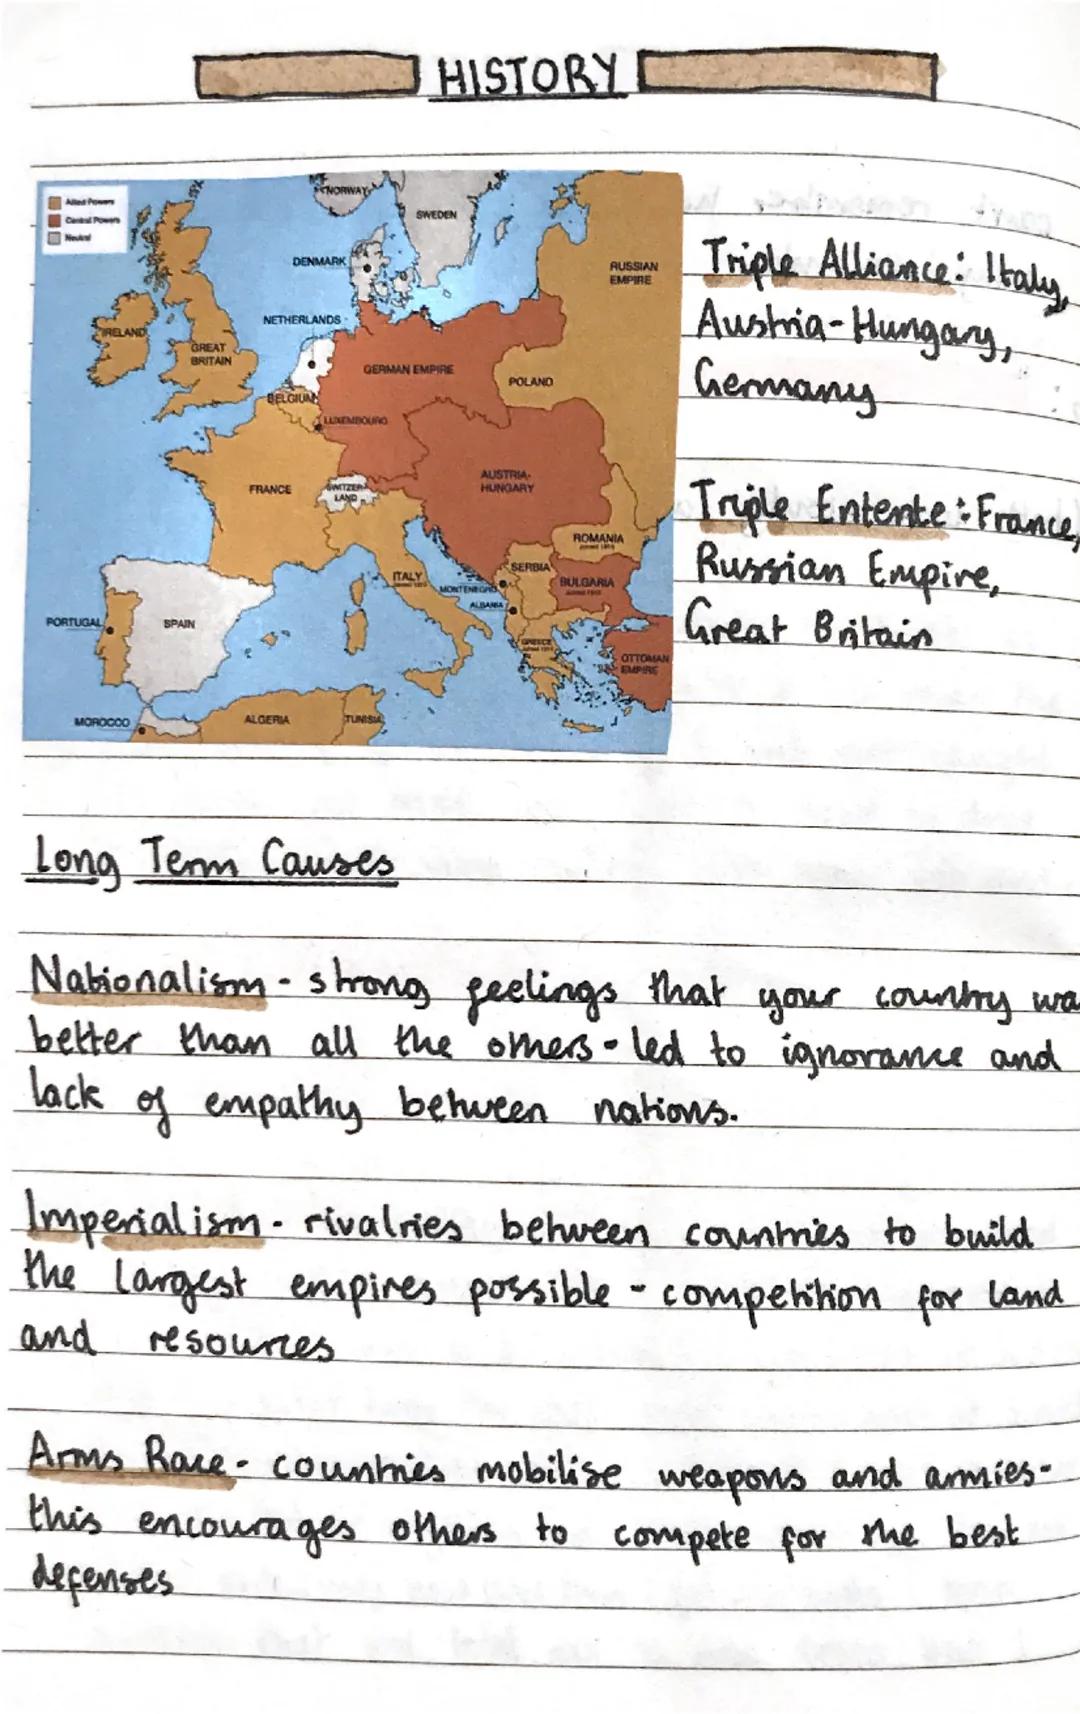 HISTORY
Allied Powers
Central Powers
Neutral
NORWAY
SWEDEN
DENMARK
RUSSIAN
EMPIRE
NETHERLANDS
IRELAND
GREAT
BRITAIN
GERMAN EMPIRE
POLAND
BELGIUM
LUXEMBOURG
FRANCE
SWITZER-
LAND
AUSTRIA-
HUNGARY
ROMANIA
ITALY
SERBIA
MONTENEGRO
BULGARIA
ALBANIA
PORTUGAL
SPAIN
GREECE
OTTOMAN
EMPIRE
MOROCCO
ALGERIA
TUNISIA
Triple Alliance: Italy,
Austria-Hungary,
Germany
Triple Entente: France,
Russian Empire,
Great Britain
Long Term Causes
Nationalism - strong feelings that your country wa
better than all the others - led to ignorance and
lack of empathy between nations.
Imperialism - rivalries between countries to build
the largest empires possible - competition for land
and resources
Arms Race - countries mobilise weapons and armies -
this encourages others to compete for the best
defenses